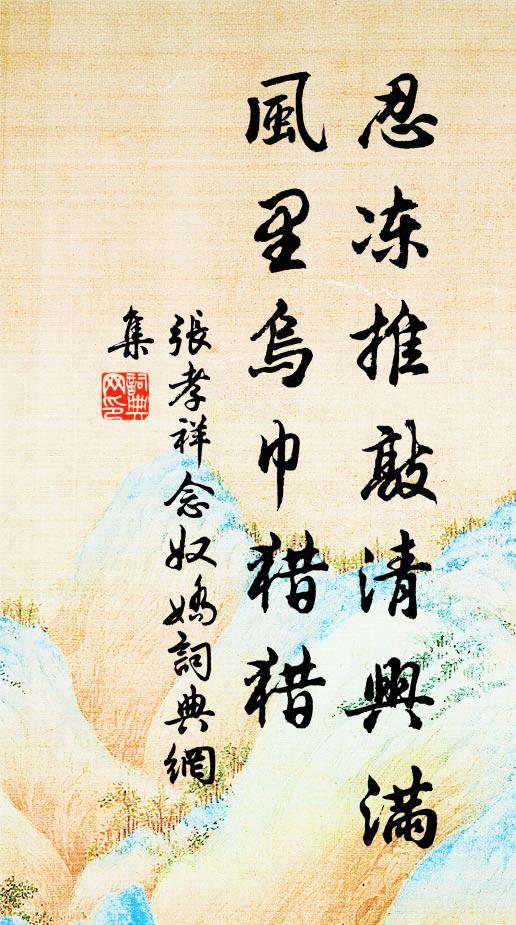 忍冻推敲清興满
風里烏巾猎猎
張孝祥念奴嬌詞典網
集
詞典網印